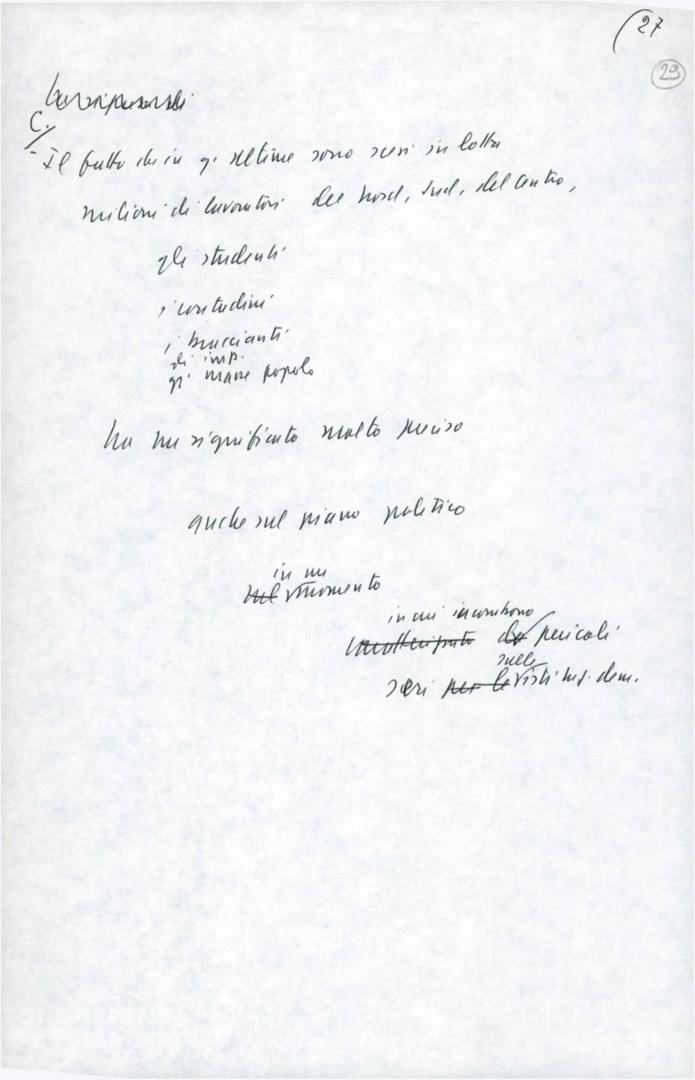 (27
29
C/
- Il fatto che in q. settime sono scesi in lotta
milioni di lavoratori del nord, sud, del centro,
gli studenti
i contadini
i braccianti
gli imp.
gr. masse popolo
ha un significato molto preciso
anche sul piano politico
in un
nel momento
in cui incombono
da pericoli
sulle
seri per le isti tuz. dem.